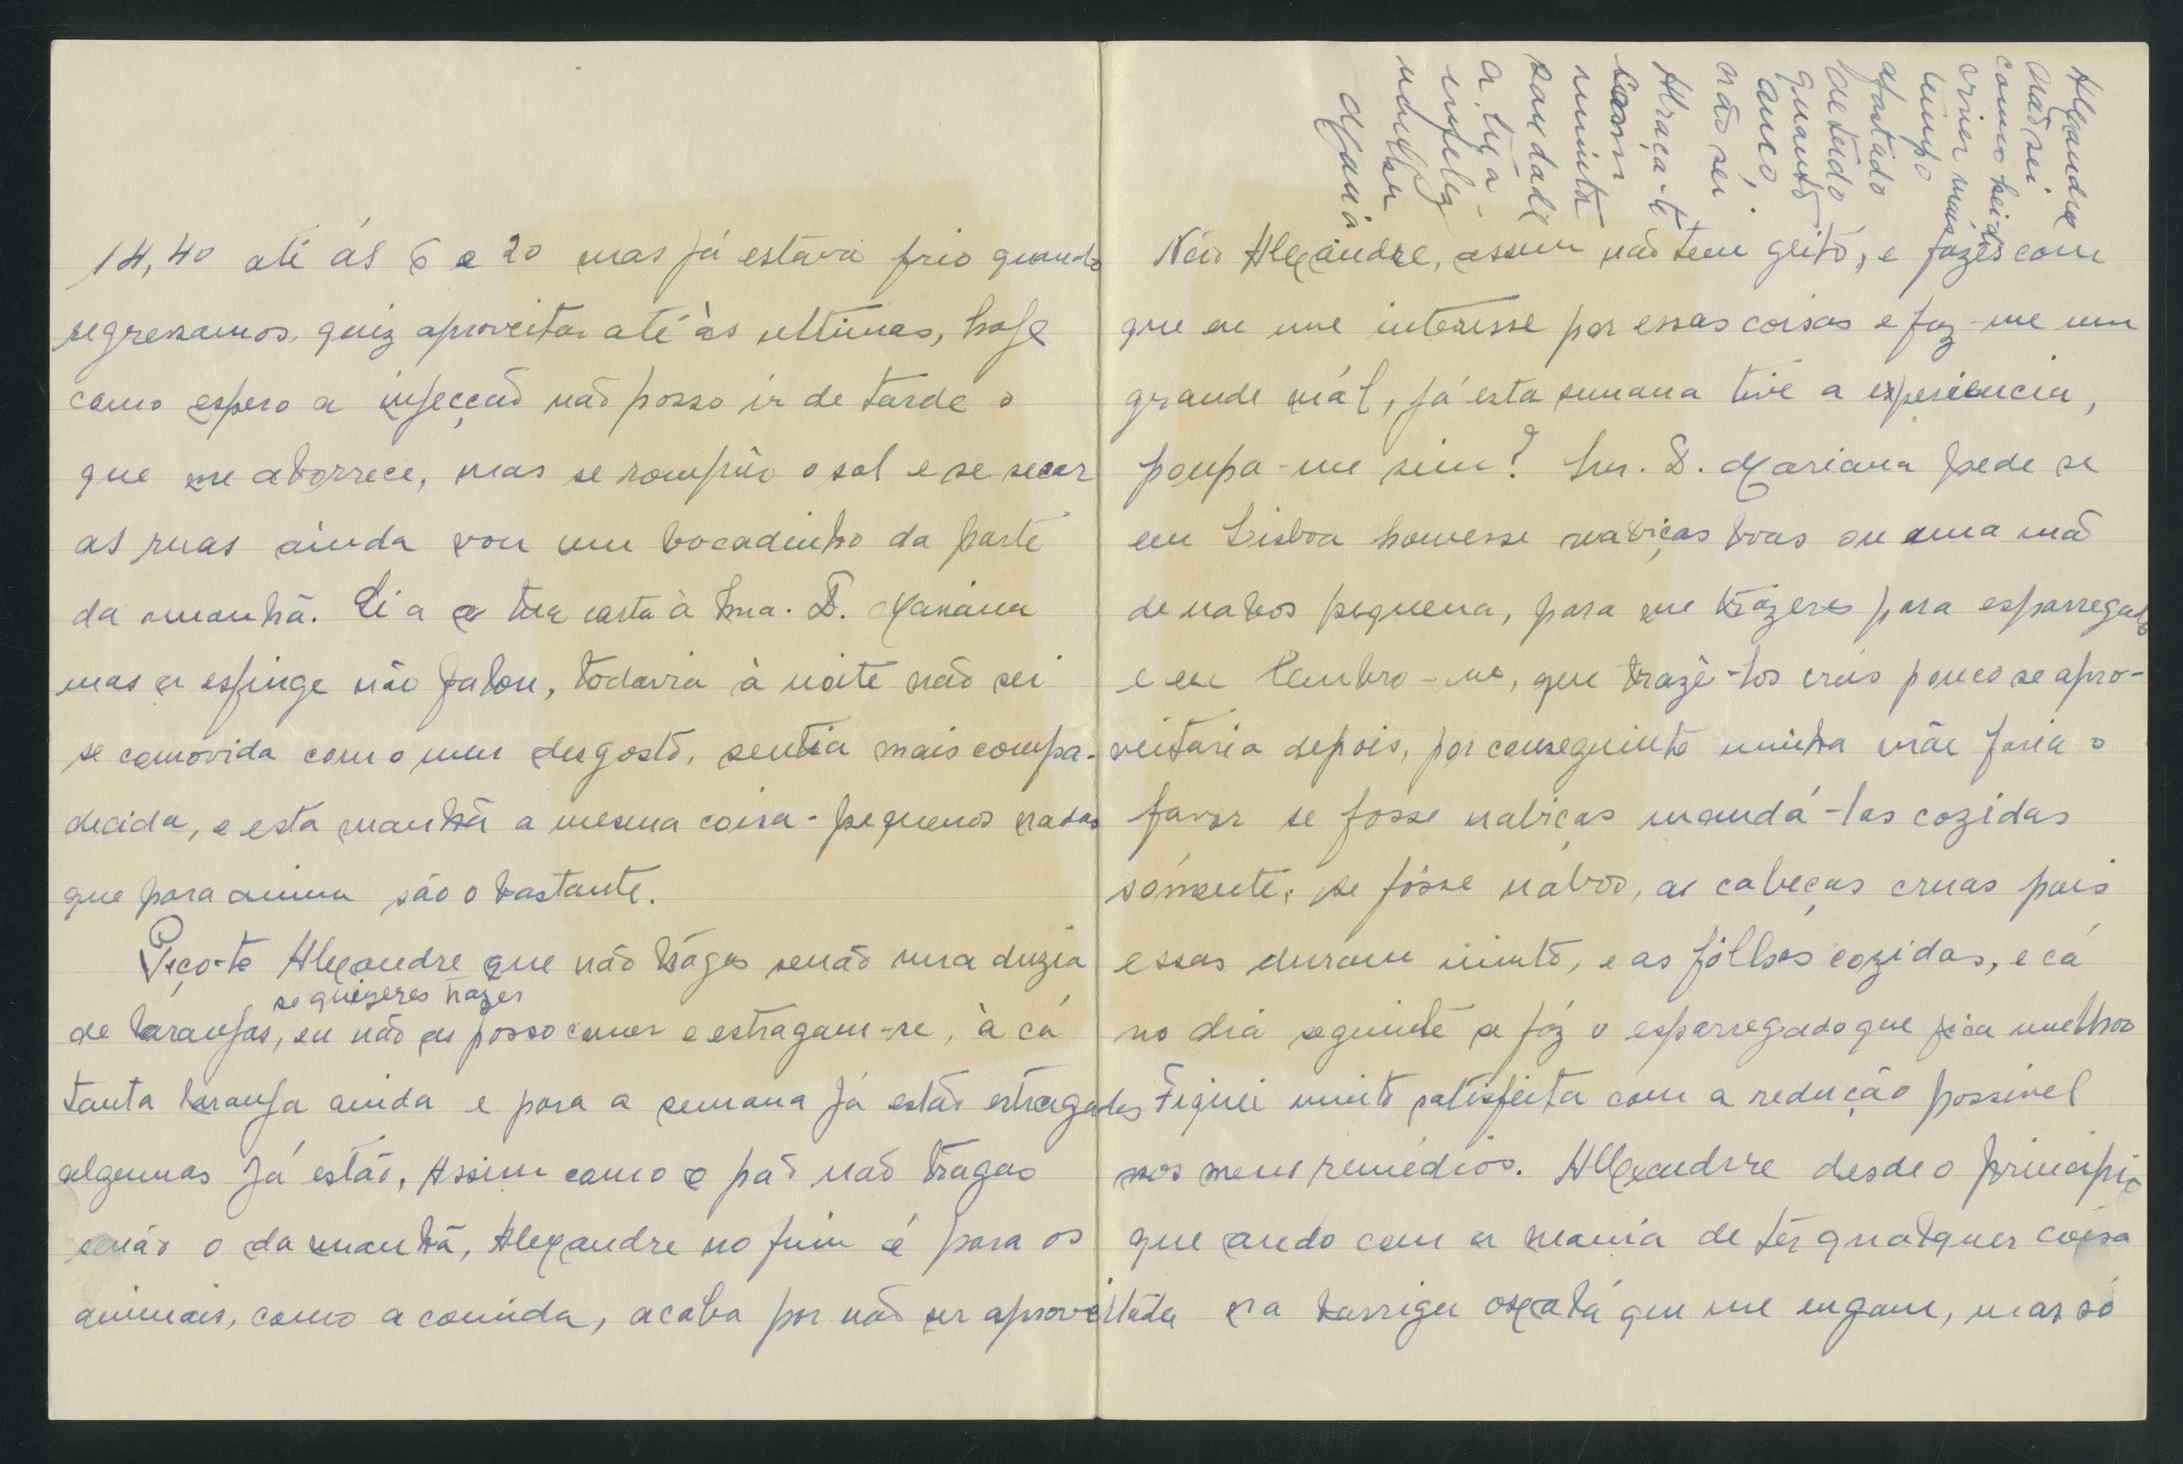 14,40 até ás 6 e 20 mas já estava frio quando
regressamos, quiz aproveitar até às ultimas, hoje
como espero a injecção não posso ir de tarde o
que me aborrece, mas se rompêr o sol e se secar
as ruas ainda vou um bocadinho da parte
da manhã. Li a tua carta à Sra. D. Mariana
mas a esfinge não falou, todavia à noite não sei
se comovida com o meu desgosto, sentia mais compa-
decida, e esta manhã a mesma coisa - pequenos nadas
que para mim são o bastante.
Peço-te Alexandre que não trágas senão uma duzia
se quizeres trazer
de laranjas, eu não as posso comer e estragam-se, à cá
tanta laranja ainda e para a semana já estão estragadas
algumas já estão, Assim como o pão não tragas
senão o da manhã, Alexandre no fim é para os
animais, como a comida, acaba por não ser aproveitada
Não Alexandre, assim não tem geito, e fazes com
que eu me interesse por essas coisas e faz-me um
grande mál, já esta semana tive a experiencia,
poupa-me sim? Sra. D. Mariana pede se
em Lisboa houvesse nabiças boas ou uma mão
de nabos pequena, para me trazeres para esparregado
e eu lembro-me, que trazê-los crus pouco se apro-
veitaria depois, por conseguinte minha mãe faria o
favor se fosse nabiças mandá-las cozidas
sómente, se fôsse nábos, as cabeças cruas pois
essas duram muito, e as fôlhas cozidas, e cá
no dia seguinte se fáz o esparregado que fica melhor
Fiquei muito satisfeita com a redução possivel
nos meus remédios. Alexandre desde o principio
que ando com a mania de têr qualquer coisa
na barriga oxalá que me engane, mas só
Alexandre
não sei
como hei de
viver mais
tempo
afastado
de tudo
quanto
amo,
não sei.
Abraça-te
com
muita
saudade
a tua
infeliz
mulher
Maria